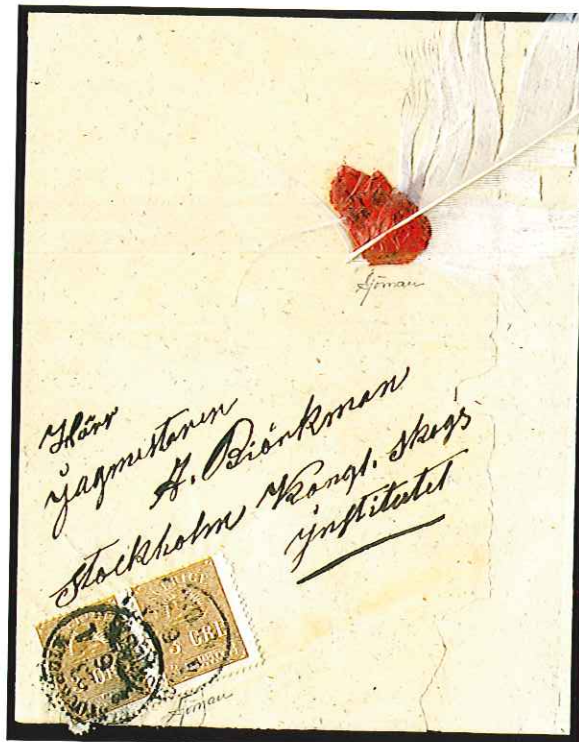 Sjöman
Härr
Jägmestaren
A. Biörkman
Stockholm Kongl. Skogs
Institutet
3 ÖRE
Sjöman